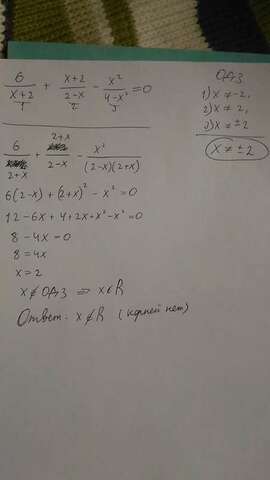 6/(x+2) + (x+2)/(2-x) - x²/(4-x²) = 0
1 2 3
ОДЗ
1) x ≠ -2,
2) x ≠ 2,
3) x ≠ ±2
x ≠ ±2
6/(2+x) + (2+x)/(2-x) - x²/((2-x)(2+x))
6(2-x) + (2+x)² - x² = 0
12 - 6x + 4 + 2x + x² - x² = 0
8 - 4x = 0
8 = 4x
x = 2
x ∉ ОДЗ ⇒ x ∈ R
Ответ: x ∉ R (корней нет)